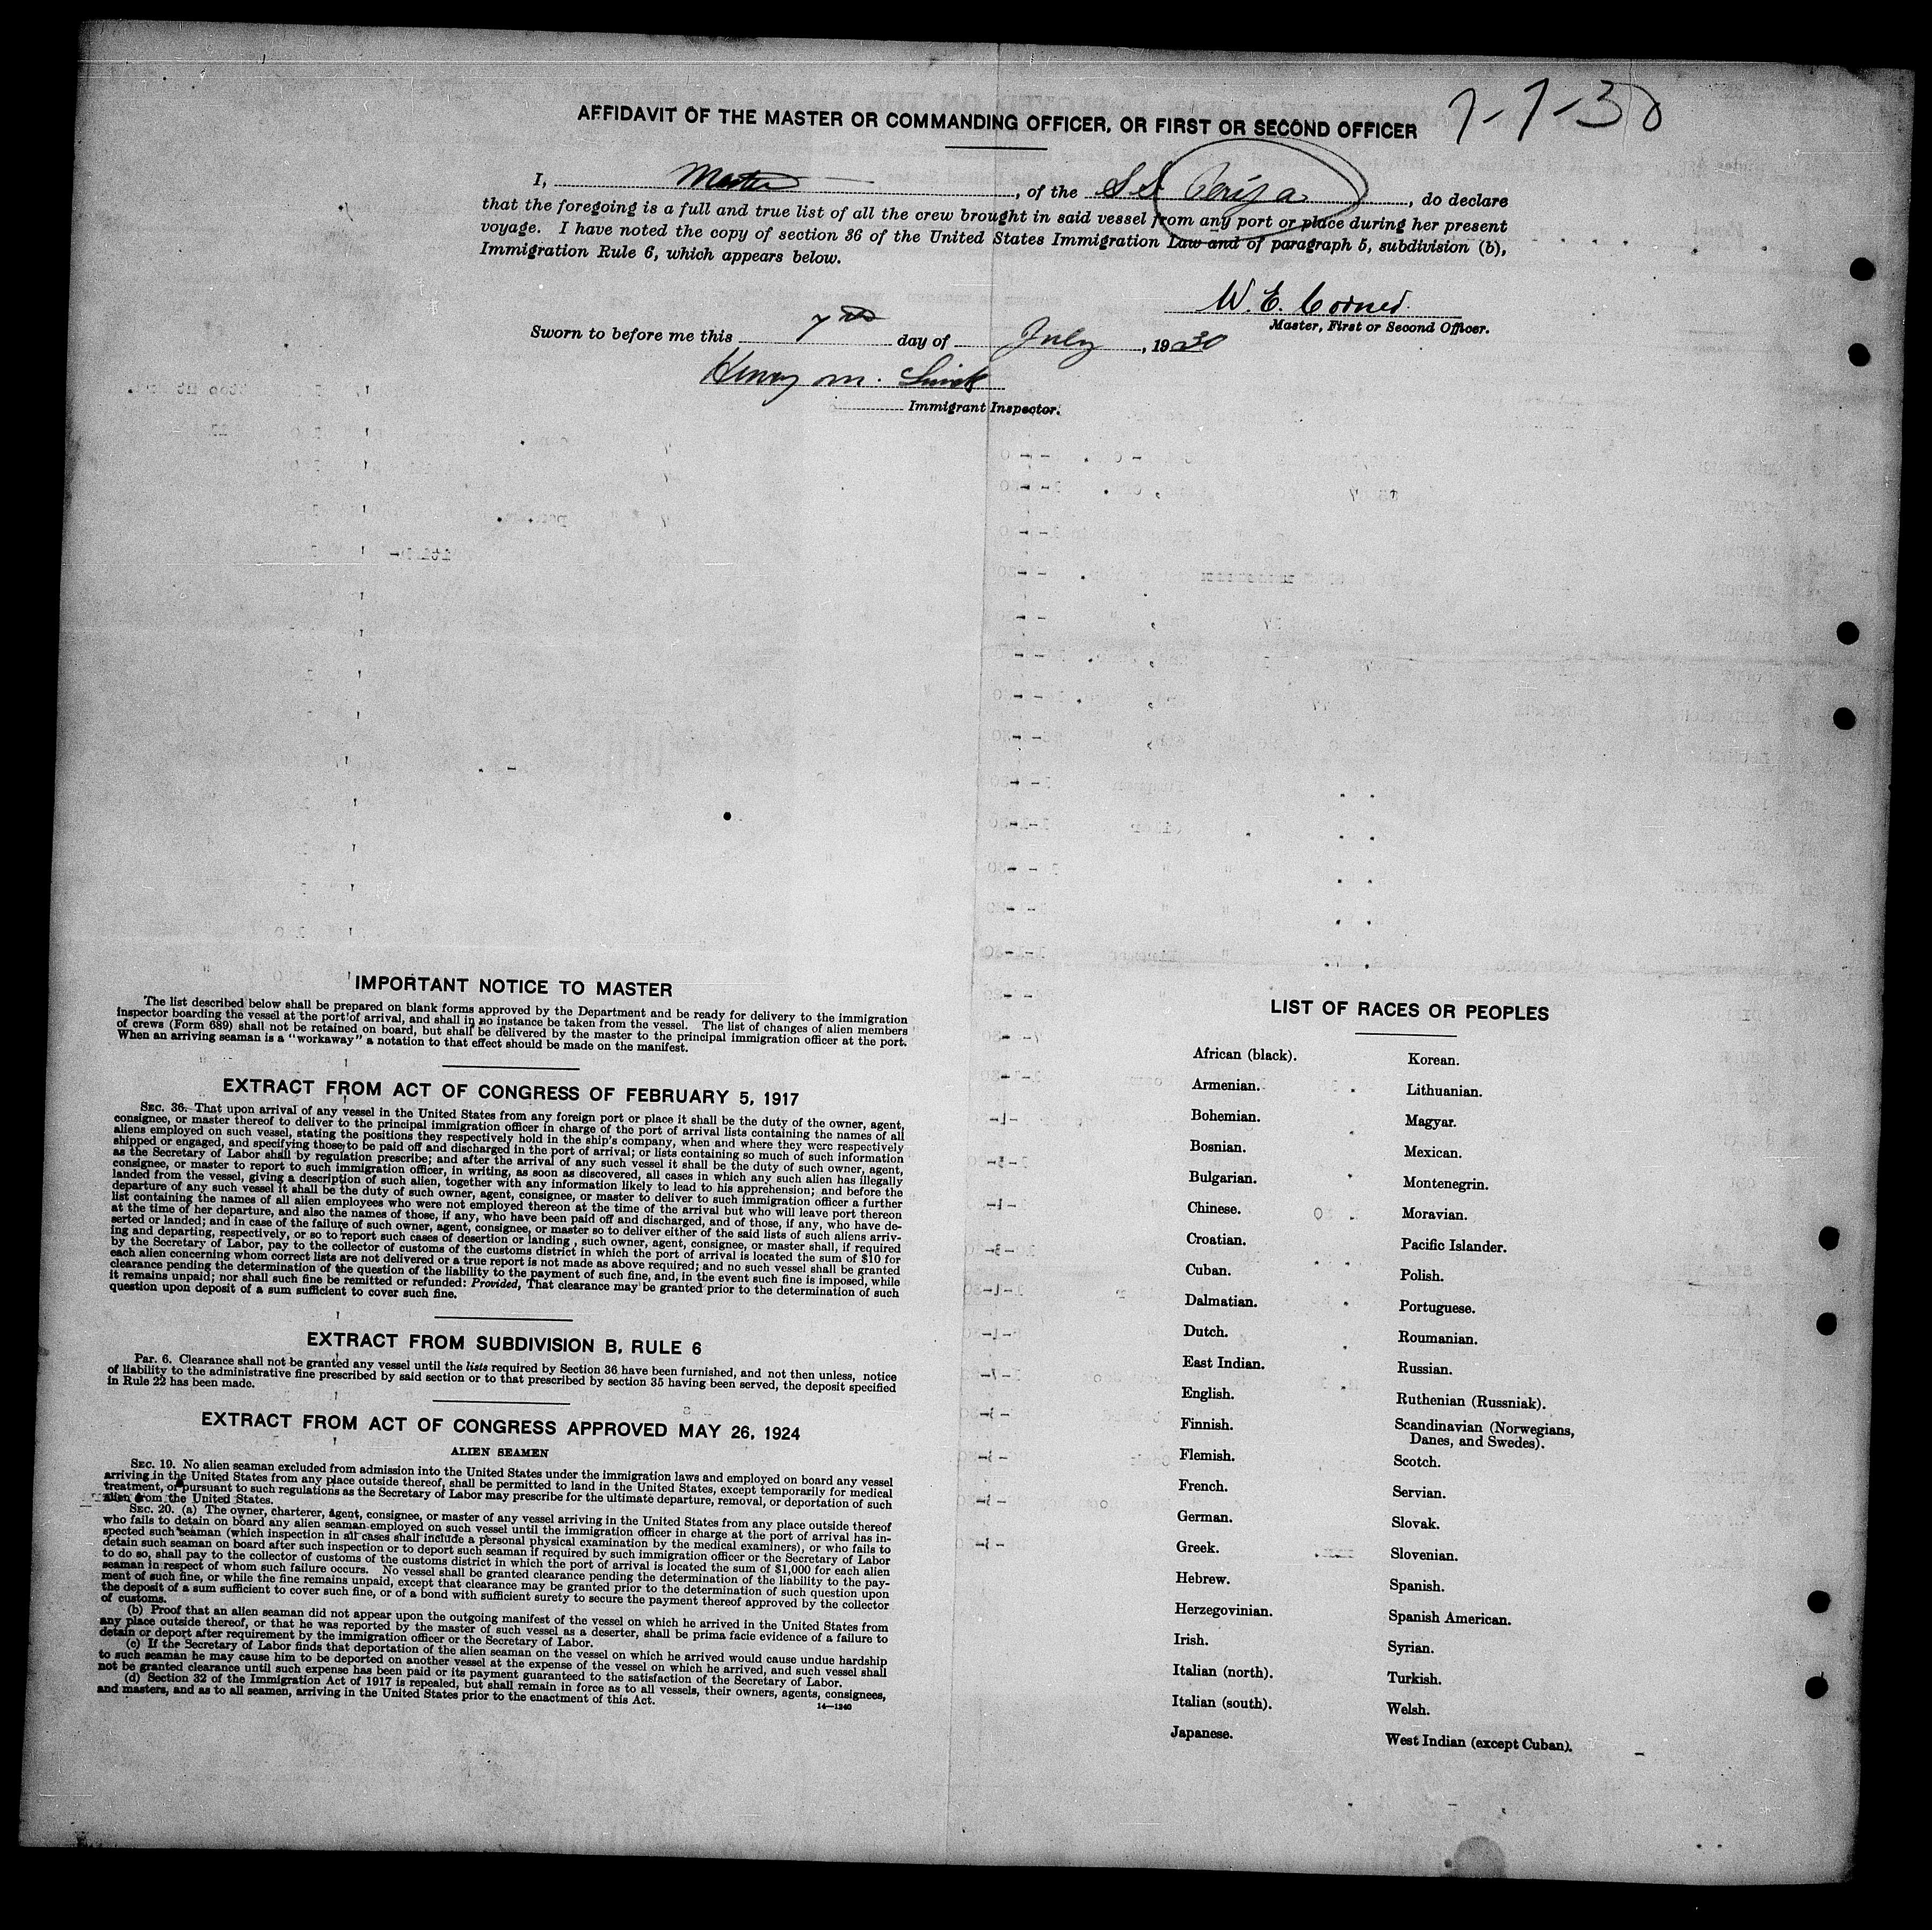 AFFIDAVIT OF THE MASTER OR COMMANDING OFFICER, OR FIRST OR SECOND OFFICER 7-7-30
I, Master, of the S.S., do declare
that the foregoing is a full and true list of all the crew brought in said vessel from any port or place during her present
voyage. I have noted the copy of section 36 of the United States Immigration Law and of paragraph 5, subdivision (b),
Immigration Rule 6, which appears below.
W. E. Corner.
Master, First or Second Officer.
Sworn to before me this 7th day of July, 1930
Henry M.
Immigrant Inspector.
IMPORTANT NOTICE TO MASTER
The list described below shall be prepared on blank forms approved by the Department and be ready for delivery to the immigration
inspector boarding the vessel at the port of arrival, and shall in no instance be taken from the vessel. The list of changes of alien members
of crews (Form 689) shall not be retained on board, but shall be delivered by the master to the principal immigration officer at the port.
When an arriving seaman is a "workaway" a notation to that effect should be made on the manifest.
EXTRACT FROM ACT OF CONGRESS OF FEBRUARY 5, 1917
SEC. 36. That upon arrival of any vessel in the United States from any foreign port or place it shall be the duty of the owner, agent,
consignee, or master thereof to deliver to the principal immigration officer in charge of the port of arrival lists containing the names of all
aliens employed on such vessel, stating the positions they respectively hold in the ship's company, when and where they were respectively
shipped or engaged, and specifying those to be paid off and discharged in the port of arrival; or lists containing so much of such information
as the Secretary of Labor shall by regulation prescribe; and after the arrival of any such vessel it shall be the duty of such owner, agent,
consignee, or master to report to such immigration officer, in writing, as soon as discovered, all cases in which any such alien has illegally
landed from the vessel, giving a description of such alien, together with any information likely to lead to his apprehension; and before the
departure of any such vessel it shall be the duty of such owner, agent, consignee, or master to deliver to such immigration officer a further
list containing the names of all alien employees who were not employed thereon at the time of the arrival but who will leave port thereon
at the time of her departure, and also the names of those, if any, who have been paid off and discharged, and of those, if any, who have de-
serted or landed; and in case of the failure of such owner, agent, consignee, or master so to deliver either of the said lists of such aliens arriv-
ing and departing, respectively, or so to report such cases of desertion or landing, such owner, agent, consignee, or master shall, if required
by the Secretary of Labor, pay to the collector of customs of the customs district in which the port of arrival is located the sum of $10 for
each alien concerning whom correct lists are not delivered or a true report is not made as above required; and no such vessel shall be granted
clearance pending the determination of the question of the liability to the payment of such fine, and, in the event such fine is imposed, while
it remains unpaid; nor shall such fine be remitted or refunded: Provided, That clearance may be granted prior to the determination of such
question upon deposit of a sum sufficient to cover such fine.
EXTRACT FROM SUBDIVISION B, RULE 6
Par. 6. Clearance shall not be granted any vessel until the lists required by Section 36 have been furnished, and not then unless, notice
of liability to the administrative fine prescribed by said section or to that prescribed by section 35 having been served, the deposit specified
in Rule 22 has been made.
EXTRACT FROM ACT OF CONGRESS APPROVED MAY 26, 1924
ALIEN SEAMEN
SEC. 19. No alien seaman excluded from admission into the United States under the immigration laws and employed on board any vessel
arriving in the United States from any place outside thereof, shall be permitted to land in the United States, except temporarily for medical
treatment, or pursuant to such regulations as the Secretary of Labor may prescribe for the ultimate departure, removal, or deportation of such
alien from the United States.
SEC. 20. (a) The owner, charterer, agent, consignee, or master of any vessel arriving in the United States from any place outside thereof
who fails to detain on board any alien seaman employed on such vessel until the immigration officer in charge at the port of arrival has in-
spected such seaman (which inspection in all cases shall include a personal physical examination by the medical examiners), or who fails to
detain such seaman on board after such inspection or to deport such seaman if required by such immigration officer or the Secretary of Labor
to do so, shall pay to the collector of customs of the customs district in which the port of arrival is located the sum of $1,000 for each alien
seaman in respect of whom such failure occurs. No vessel shall be granted clearance pending the determination of the liability to the pay-
ment of such fine, or while the fine remains unpaid, except that clearance may be granted prior to the determination of such question upon
the deposit of a sum sufficient to cover such fine, or of a bond with sufficient surety to secure the payment thereof approved by the collector
of customs.
(b) Proof that an alien seaman did not appear upon the outgoing manifest of the vessel on which he arrived in the United States from
any place outside thereof, or that he was reported by the master of such vessel as a deserter, shall be prima facie evidence of a failure to
detain or deport after requirement by the immigration officer or the Secretary of Labor.
(c) If the Secretary of Labor finds that deportation of the alien seaman on the vessel on which he arrived would cause undue hardship
to such seaman he may cause him to be deported on another vessel at the expense of the vessel on which he arrived, and such vessel shall
not be granted clearance until such expense has been paid or its payment guaranteed to the satisfaction of the Secretary of Labor.
(d) Section 32 of the Immigration Act of 1917 is repealed, but shall remain in force as to all vessels, their owners, agents, consignees,
and masters, and as to all seamen, arriving in the United States prior to the enactment of this Act.
14—1240
LIST OF RACES OR PEOPLES
African (black).
Armenian.
Bohemian.
Bosnian.
Bulgarian.
Chinese.
Croatian.
Cuban.
Dalmatian.
Dutch.
East Indian.
English.
Finnish.
Flemish.
French.
German.
Greek.
Hebrew.
Herzegovinian.
Irish.
Italian (north).
Italian (south).
Japanese.
Korean.
Lithuanian.
Magyar.
Mexican.
Montenegrin.
Moravian.
Pacific Islander.
Polish.
Portuguese.
Roumanian.
Russian.
Ruthenian (Russniak).
Scandinavian (Norwegians,
Danes, and Swedes).
Scotch.
Servian.
Slovak.
Slovenian.
Spanish.
Spanish American.
Syrian.
Turkish.
Welsh.
West Indian (except Cuban).